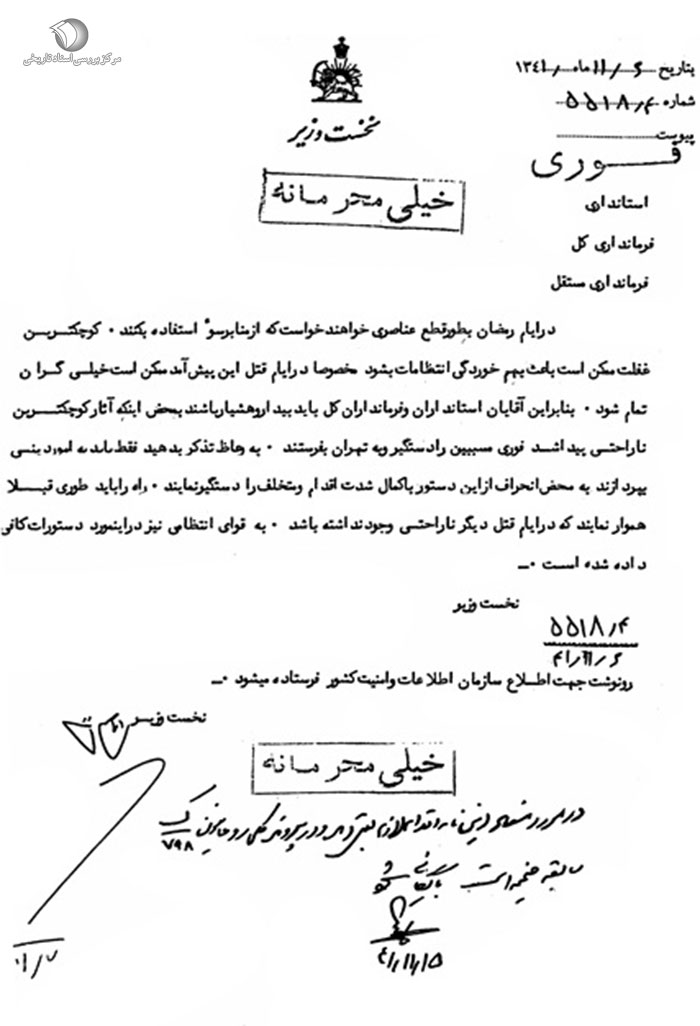 مرکز بررسی اسناد تاریخی
بتاریخ ۶/۱۱ ماه ۱۳۴۱
شماره ۵۵۱۸/م
پیوست
نخست وزیر
فوری
خیلی محرمانه
استانداری
فرمانداری کل
فرمانداری مستقل
درایام رمضان بطورقطع عناصری خواهند خواست که ازمنابرسوء استفاده بکنند ۰ کوچکتریـن
غفلت ممکن است باعث بهم خوردگی انتظامات بشود مخصوصا درایام قتل این پیش آمد ممکن است خیلـی گـران
تمام شود ۰ بنابراین آقایان استانداران وفرمانداران کل باید بیداروهشیارباشند بمحض اینکه آثارکوچکتریـن
ناراحتـی پیداشد فوری مسببین رادستگیر وبه تهران بفرستند ۰ به وعاظ تذکر بدهید فقط باید به اموردینـی
بپردازند به محض انحراف ازاین دستور باکمال شدت اقدام ومتخلف را دستگیرنمایند ۰ راه راباید طوری قبـلا
هموار نمایند که درایام قتل دیگر ناراحتـی وجودنداشته باشد ۰ به قوای انتظامی نیز دراینمورد دستورات کافی
داده شده اسـت ۰ـ
نخست وزیر
۵۵۱۸/م
۴۱/۱۱/۶
رونوشت جهت اطـلاع سازمان اطلاعات وامنیت کشور فرستاده میشود ۰ـ
نخست وزیـر
خیلی محرمانه
۷۹۸
سابقه ضمیمه است
۴۱/۱۱/۱۵